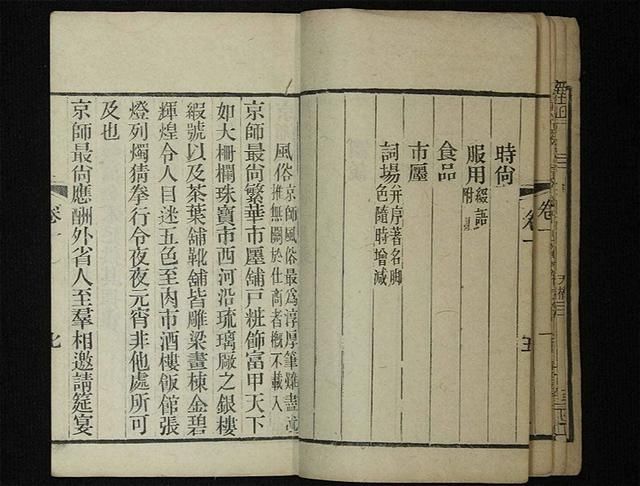 時尚
服用綴語附
食品
市廛
詞場并序著名脚色隨時增減
卷一
五
風俗京師風俗最為淳厚筆難盡述推無關於仕商者概不載入
京師最尚繁華市廛舖戶粧飾富甲天下
如大柵欄珠寶市西河沿琉璃廠之銀樓
緞號以及茶葉舖靴舖皆雕梁畫棟金碧
輝煌令人目迷五色至肉市酒樓飯館張
燈列燭猜拳行令夜夜元宵非他處所可
及也
京師最尚應酬外省人至羣相邀請筵宴